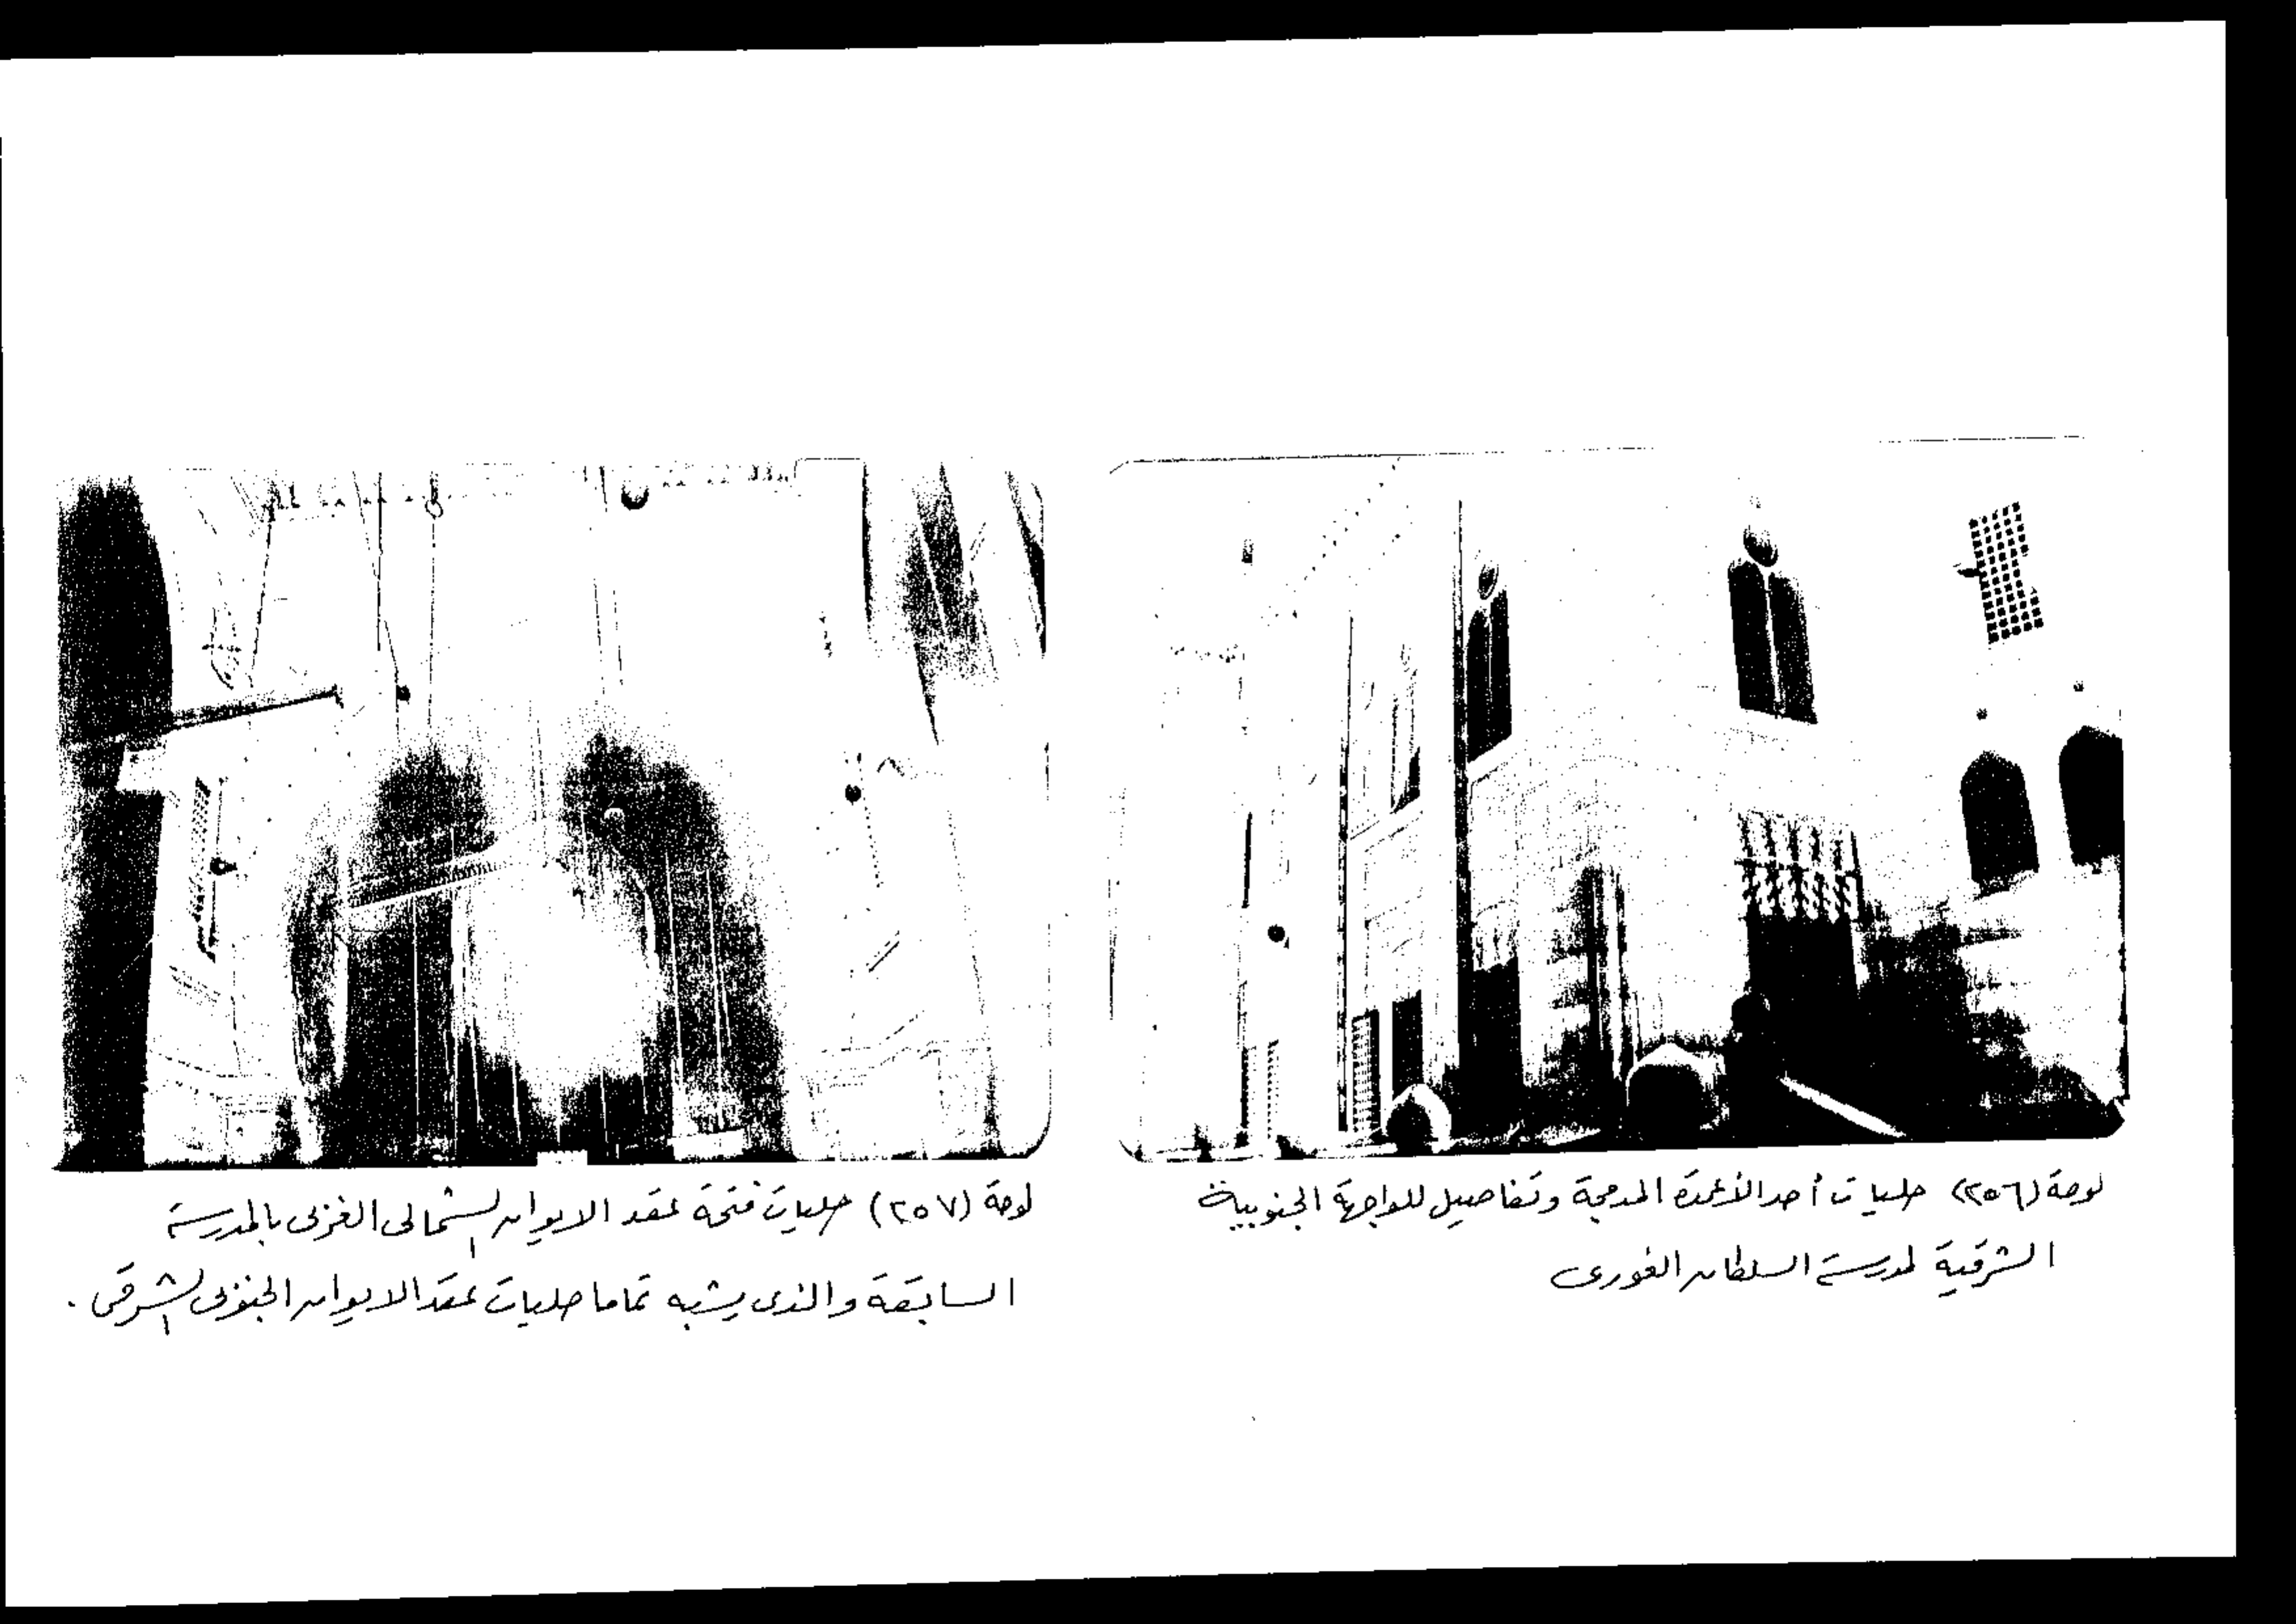 لوحة (٢٥٦) حليات أحد الأعمدة المدمجة وتفاصيل للواجهة الجنوبية
الشرقية لمدرسة السلطان الغورى
لوحة (٢٥٧) حليات فتحة عقد الايوان الشمالى الغربى بالمدرسة
السابقة والذى يشبه تماما حليات عقد الايوان الجنوبى الشرقى .